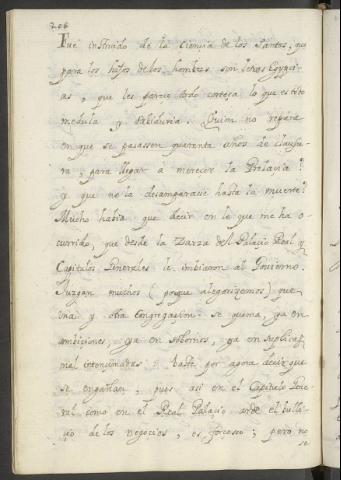 Fue instruido de la Ciencia de los Santos, que
para los hijos de los hombres son letras Egypci-
as, que les parece todo corteza lo que es todo
medula y sabiduria. Quien no repara
en que se pasassen quarenta años de clausu-
ra, para llegar a merecer la Prelacia?
y que no la desamparasse hasta la muerte?
Mucho habia que decir en lo que me ha o-
currido, que desde la Zarza del Palacio Real y
Capitulos Generales le embiaron al Govierno.
Juzgan muchos (porque alegorizemos) que
una y otra Congregacion se quema, ya en
ambiciones, ya en sobornos, ya en suplicas
mal intencionadas: baste por agora decir que
se engañan, pues asi en el Capitulo Gene-
ral como en el Real Palacio arde el bulli-
cio de los negocios, es forzoso; pero no
se